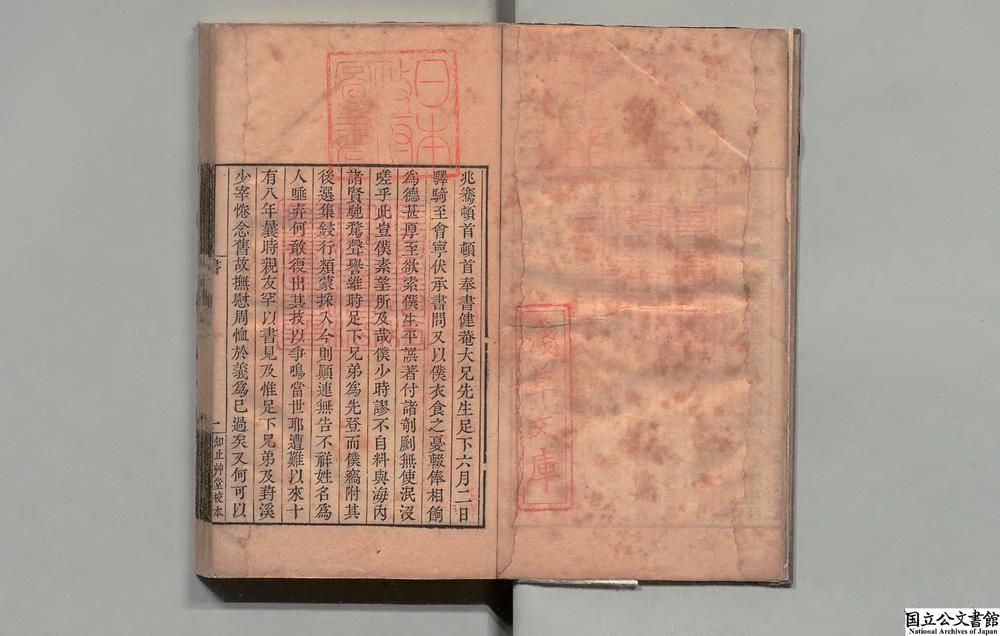 兆騫頓首頓首奉書健菴大兄先生足下六月二日
驛騎至會寧伏承書問又以僕衣食之憂輟俸相餉
為德甚厚至欲索僕生平譔著付諸剞劂無使泯沒
嗟乎此豈僕素望所及哉僕少時謬不自料與海內
諸賢馳騖聲譽維時足下兄弟為先登而僕竊附其
後選集綬行類蒙採入今則顛連無告不祥姓名為
人唾弃何敢復出其技以爭鳴當世耶遭難以來十
有八年曩時親友罕以書見及惟足下兄弟及葑溪
少宰惓念舊故撫慰周恤於義為已過矣又何可以
書
一
知止艸堂校本
日本
政府
圖書
淺草文庫
国立公文書館
National Archives of Japan